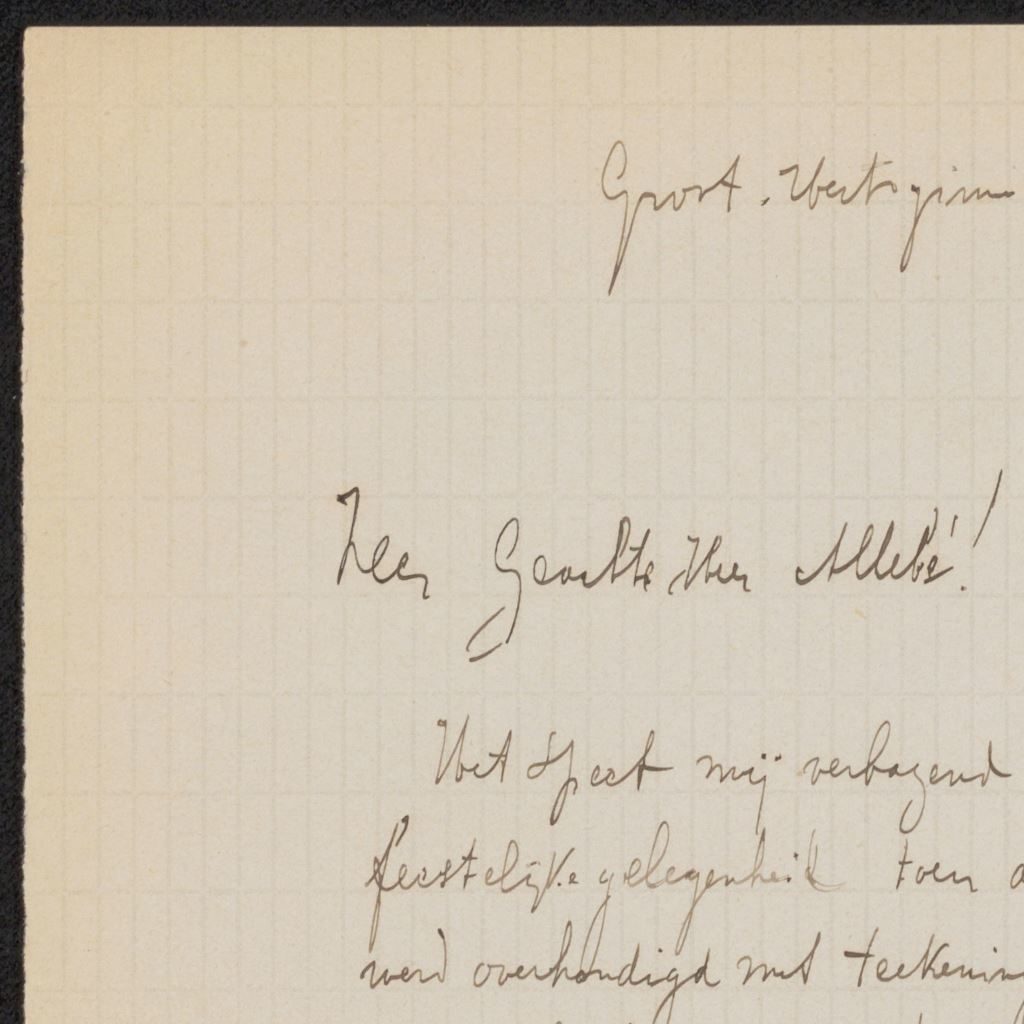 Groot. Hertogin
Zeer Geachte Heer Allebé!
Het speet mij verbazend
feestelijke gelegenheid toen
werd overhandigd met teekening